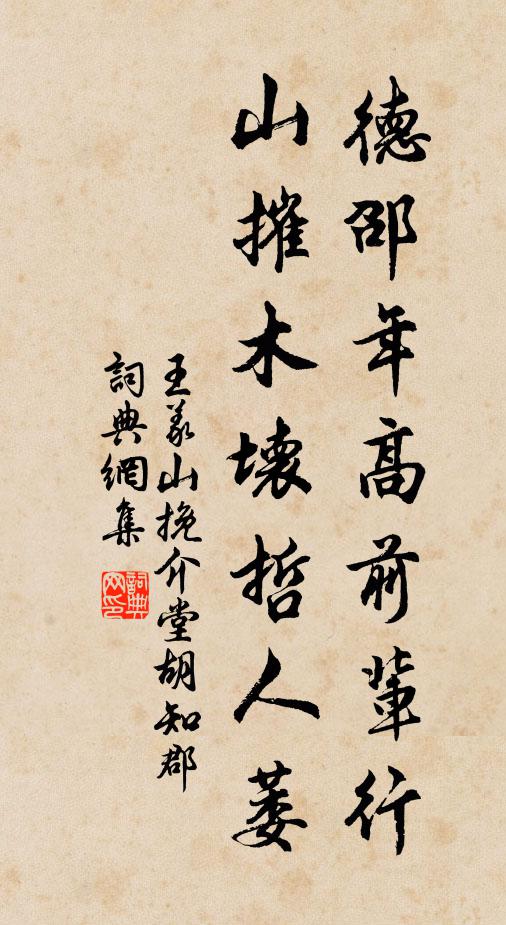 德邵年高前輩行
山摧木壞哲人萎
王義山挽介堂胡知郡
詞典網集
詞典网印